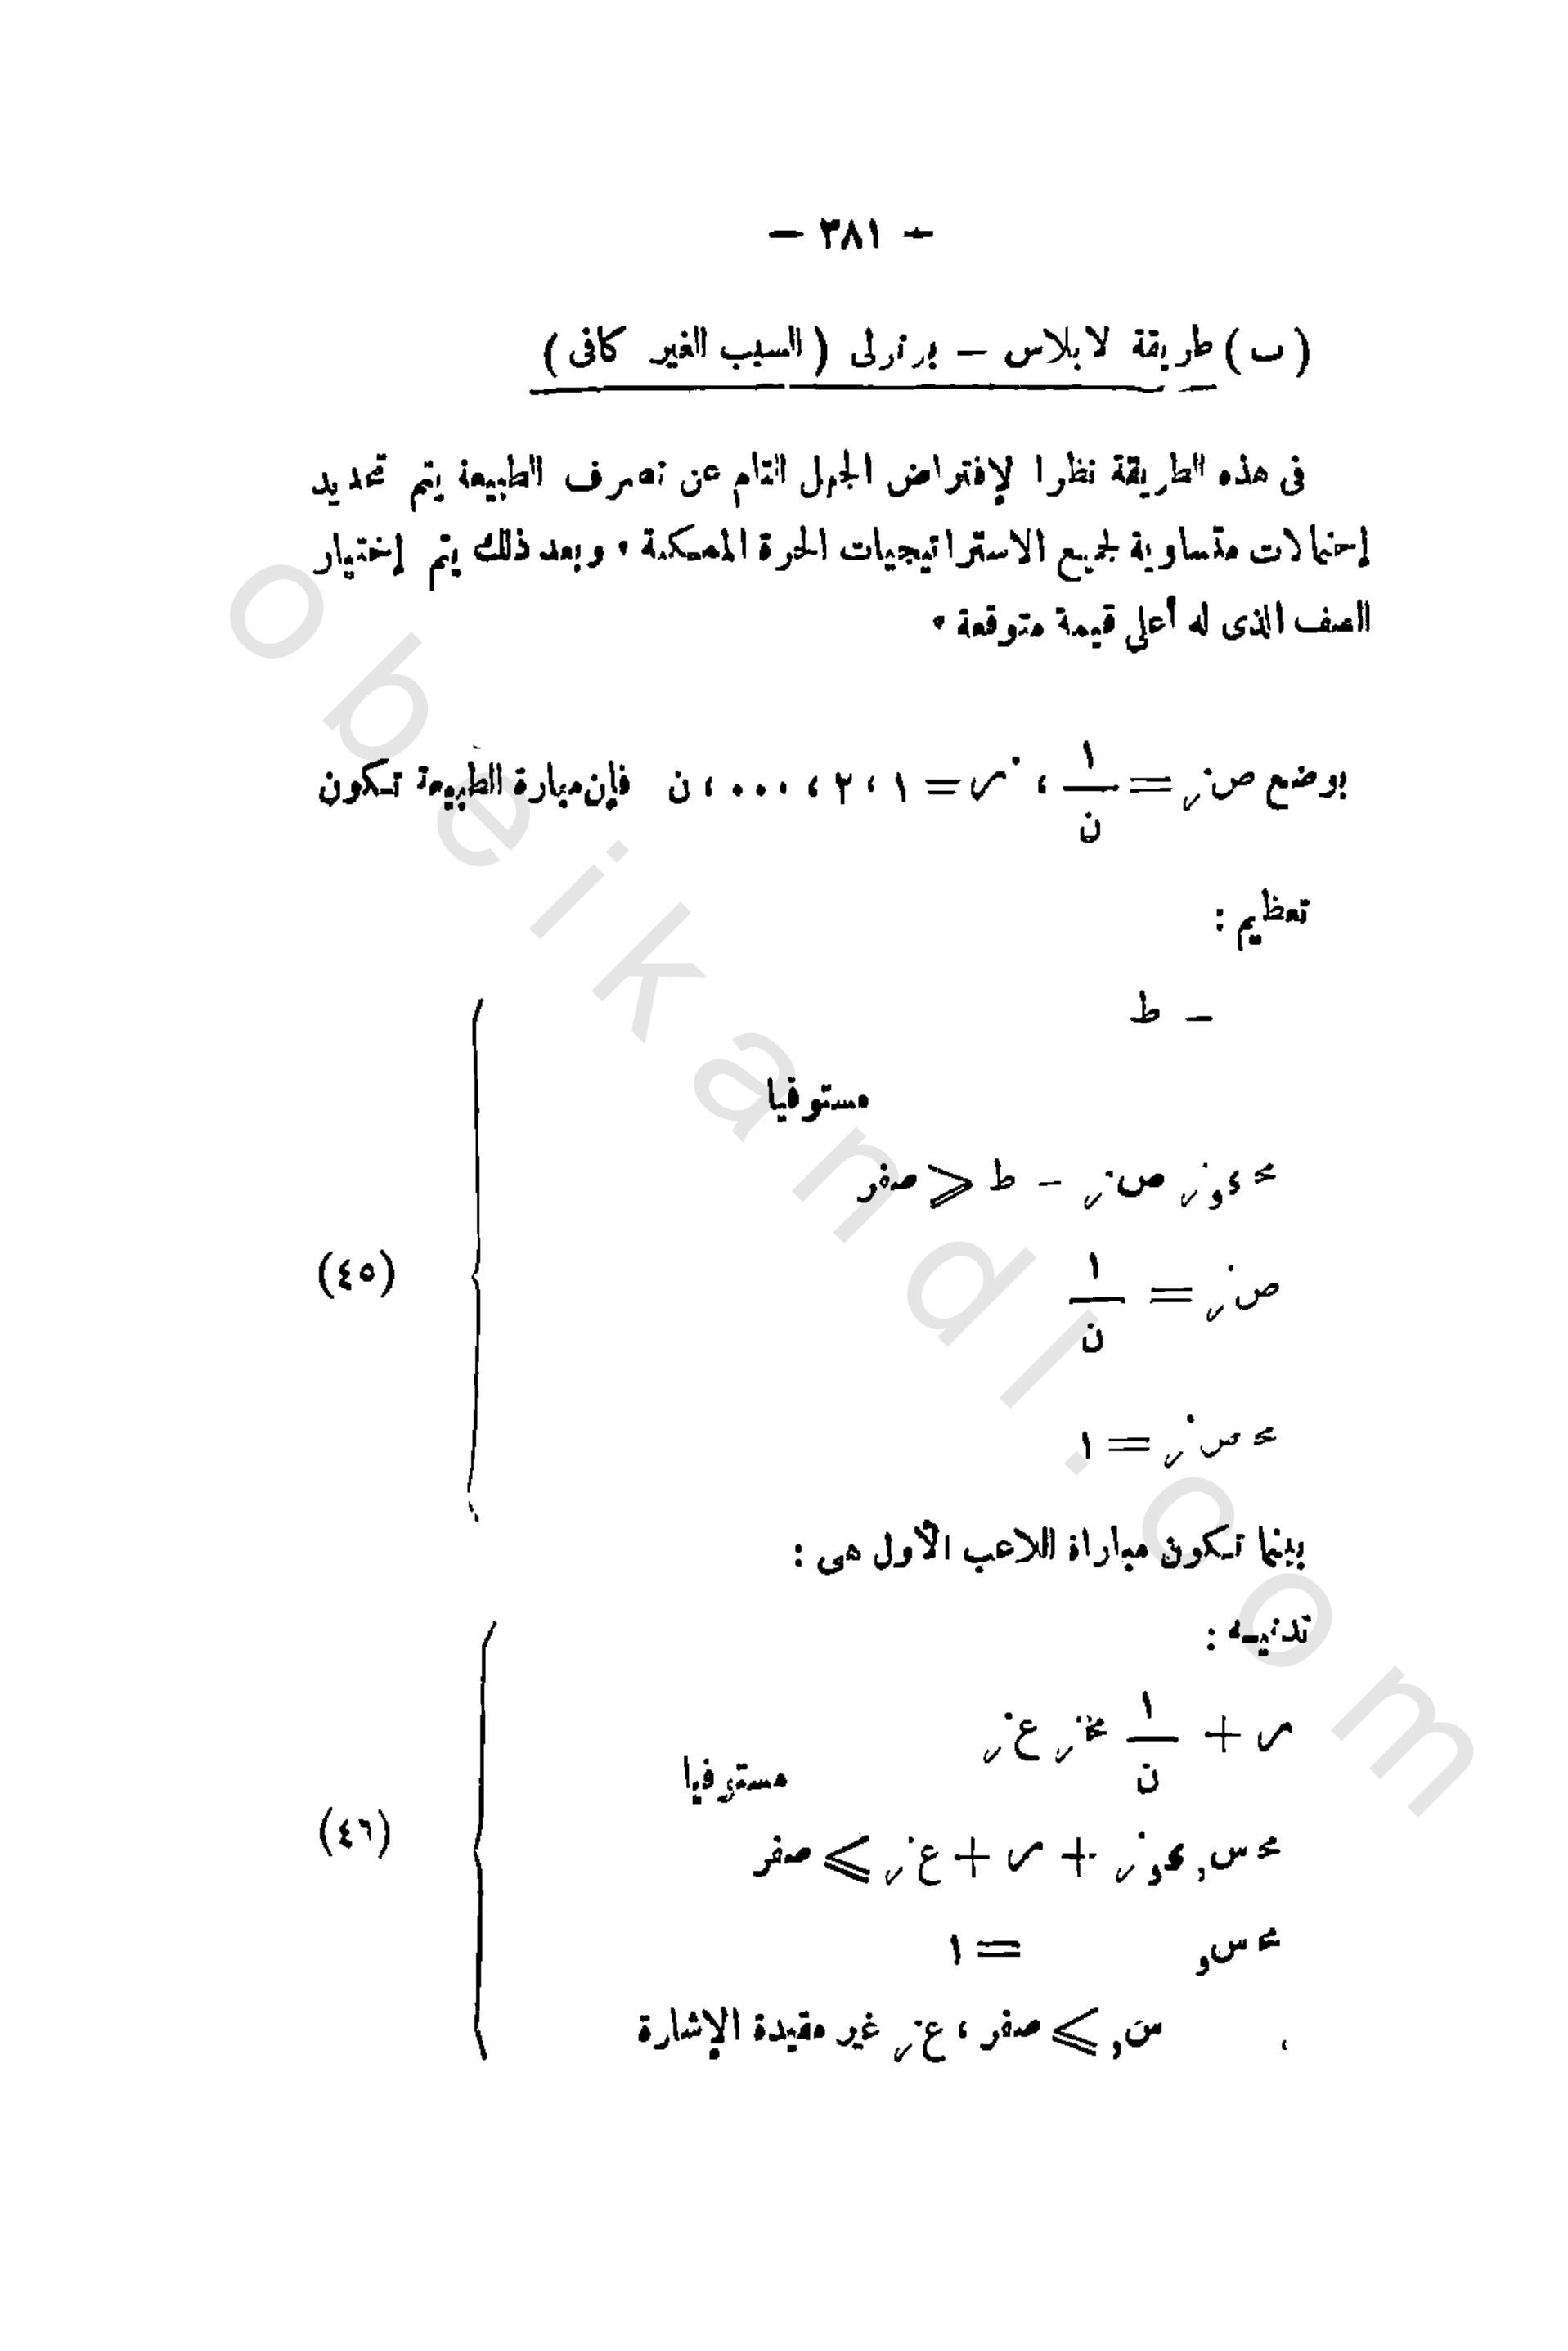 — ٣٨١ —
(ب) طريقة لابلاس — برنولى (السبب الغير كافى)
فى هذه الطريقة نظرا لإفتراض الجهل التام عن تصرف الطبيعة يتم تحديد
إحتمالات متساوية لجميع الاستراتيجيات الحرة الممكنة ، وبعد ذلك يتم إختيار
الصف الذى له أعلى قيمة متوقعة .
بوضع صز = ١/ن ، ز = ١ ، ٢ ، ... ، ن فإن مباراة الطبيعة تكون
تعظيم :
— ط
مستوفيا
صز — ط ⩽ صفر
صز = ١/ن
(٤٥)
سز = ١
بينما تكون مباراة اللاعب الأول هى :
تدنيه :
+ ١/ن عز
مستوفيا
(٤٦)
+ عز ⩾ صفر
سو = ١
، سو ⩾ صفر ، عز غير مقيدة الإشارة
obeikandl.com